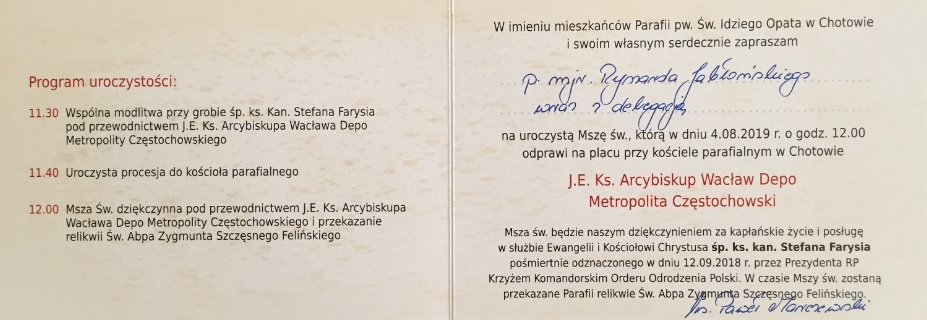 Program uroczystości:
11.30 Wspólna modlitwa przy grobie śp. ks. Kan. Stefana Farysia
pod przewodnictwem J.E. Ks. Arcybiskupa Wacława Depo
Metropolity Częstochowskiego
11.40 Uroczysta procesja do kościoła parafialnego
12.00 Msza Św. dziękczynna pod przewodnictwem J.E. Ks. Arcybiskupa
Wacława Depo Metropolity Częstochowskiego i przekazanie
relikwii Św. Abpa Zygmunta Szczęsnego Felińskiego
W imieniu mieszkańców Parafii pw. Św. Idziego Opata w Chotowie
i swoim własnym serdecznie zapraszam
p. mjr. Ryszarda Jabłońskiego
wraz z delegacją
na uroczystą Mszę św., którą w dniu 4.08.2019 r. o godz. 12.00
odprawi na placu przy kościele parafialnym w Chotowie
J.E. Ks. Arcybiskup Wacław Depo
Metropolita Częstochowski
Msza św. będzie naszym dziękczynieniem za kapłańskie życie i posługę
w służbie Ewangelii i Kościołowi Chrystusa śp. ks. kan. Stefana Farysia
pośmiertnie odznaczonego w dniu 12.09.2018 r. przez Prezydenta RP
Krzyżem Komandorskim Orderu Odrodzenia Polski. W czasie Mszy św. zostaną
przekazane Parafii relikwie Św. Abpa Zygmunta Szczęsnego Felińskiego.
ks. Paweł Marczewski